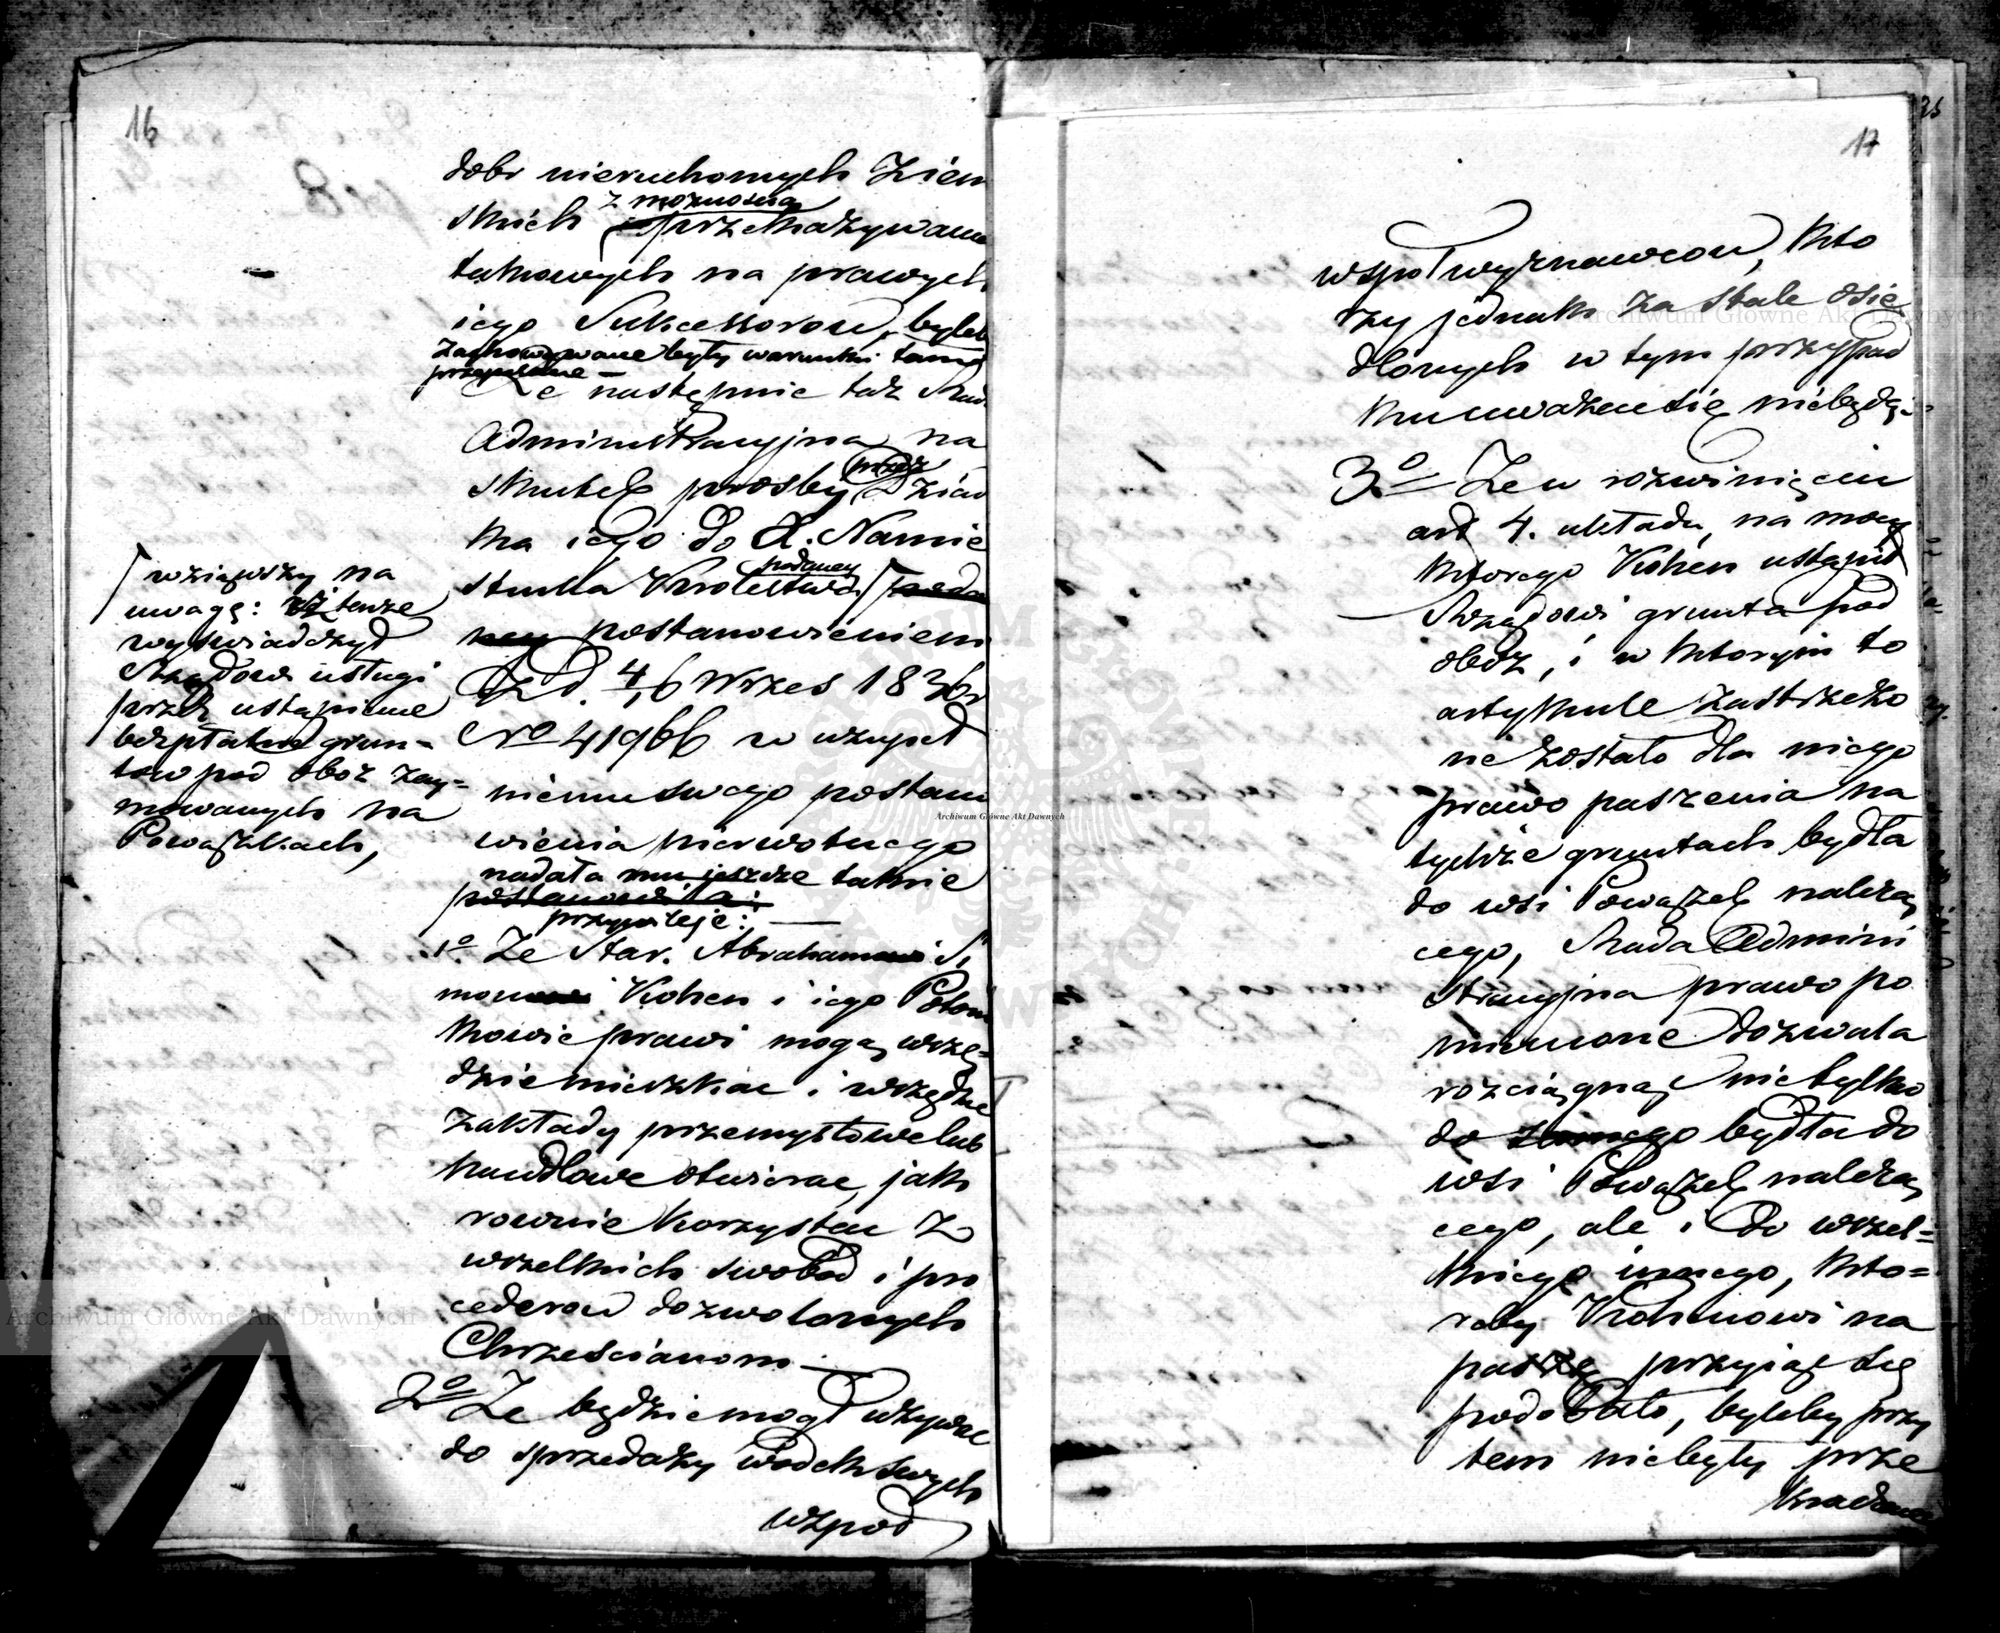 16
dobr nieruchomych Ziem
skich z możnością przekazywania
takowych na prawych
iego Sukcessorow, byleb
zachowywane były warunki tamże
przepisane —
Że następnie taż Rada
Administracyjna na
skutek prosby przez Dziad
ka iego do X. Namie
stnika Krolestwa podaney poda
ney postanowieniem
z d. 4/16 Wrzes 1836 r
No 41966 w uzupeł
nieniu swego postano
wienia pierwotnego
nadała mu jeszcze takie
postanowiła:
przywileje: —
1o. Że Star. Abraham Si
mon Kohen i iego Potom
kowie prawi mogą wszę=
dzie mieszkać i wszędzie
zakłady przemysłowe lub
handlowe otwierac, jak
rownie korzystać z
wszelkich swobod i pro
cederow dozwolonych
Chrześcianom —
2o Że będzie mogł używać
do sprzedaży wodek swych
wspoł
wziąwszy na
uwagę: iż tenże
wyswiadczył
Rządowi usługi
przez ustąpienie
bezpłatne grun=
tow pod oboz zay=
mowanych na
Powązkach,
17
wspołwyznawcow, kto
rzy jednak za stale osie
dlonych w tym przypad
ku uważeni się niebędą.
3o Że w rozwinięciu
art 4. układu, na mocy
ktorego Kohen ustąpił
Rządowi grunta pod
oboz, i w ktorym to
artykule zastrzeżo
ne zostało dla niego
prawo paszenia na
tychże gruntach bydła
do wsi Powązek należą
cego, Rada Admini
stracyjna prawo po
mienione dozwala
rozciągnąć nietylko
do bydła do
wsi Powązek należą
cego, ale i do wszel=
kiego innego, kto=
reby Kohenowi na
paszę przyiąć się
podobało, byleby przy
tem niebyły prze
kraczane
Archiwum Główne Akt Dawnych
Archiwum Główne Akt Dawnych
Archiwum Główne Akt Dawnych